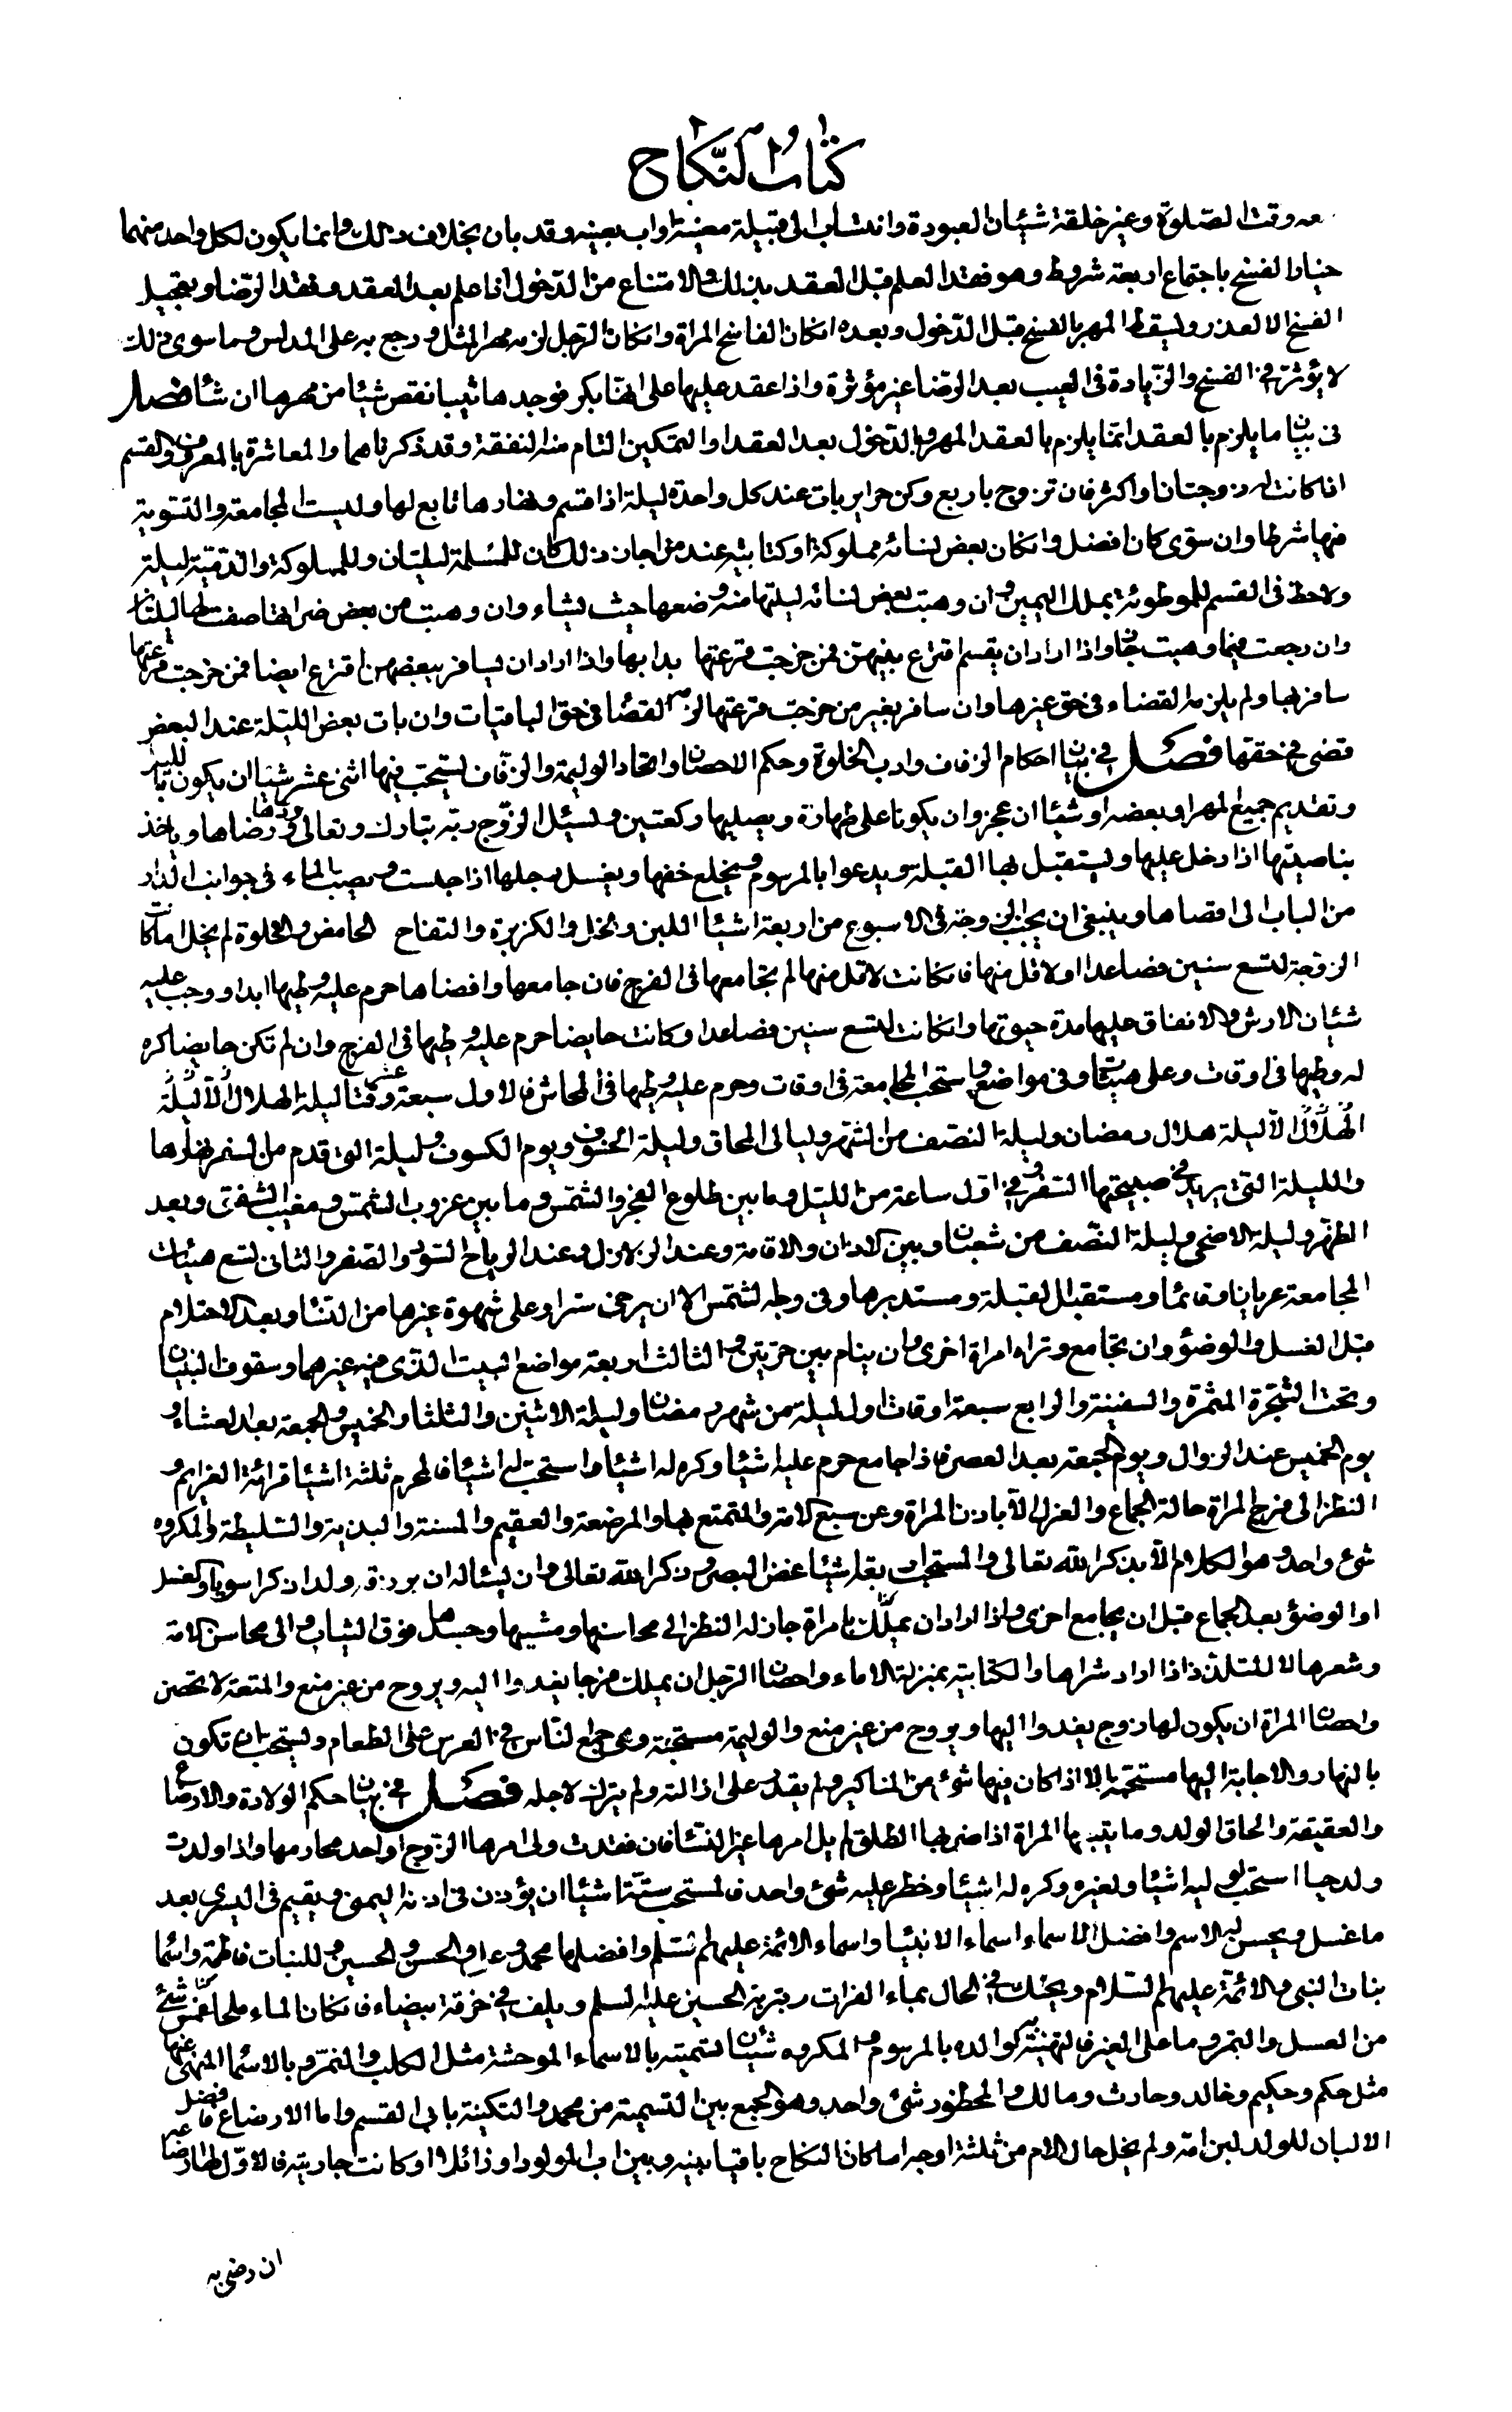 كتاب النكاح
وقت الصلوة وغير خلقة شيئان العبودة وانتساب الى قبيلة معينة او اب بعينه وقد بان بخلاف ذلك وانما يكون لكل واحد منهما
خيار الفسخ باجتماع اربعة شروط وهو فقد العلم قبل العقد بذلك والامتناع من الدخول اذا علم بعد العقد وفقد الرضا وتعجيل
الفسخ الا لعذر ويسقط المهر بالفسخ قبل الدخول وبعده ان كان الفاسخ المراة وان كان الرجل لزمه مهر المثل ورجع به على المدلس وما سوى ذلك
لا يؤثر في الفسخ والزيادة في العيب بعد الرضا غير مؤثرة واذا عقد عليها على انها بكر فوجدها ثيبا نقص شيئا من مهرها ان شاء فصل
في بيان ما يلزم بالعقد انما يلزم بالعقد المهر وبالدخول بعد العقد او التمكين التام منه النفقة وقد ذكرناهما والمعاشرة بالمعروف والقسم
اذا كانت له زوجتان او اكثر فان تزوج باربع وكن حراير بات عند كل واحدة ليلة اذا قسم ونهارها تابع لها وليست المجامعة والتسوية
فيها شرطا وان سوى كان افضل وان كان بعض نسائه مملوكة او كتابية عند من اجاز ذلك كان للمسلمة ليلتان وللمملوكة والذمية ليلة
ولا حظ في القسم للموطوئة بملك اليمين وان وهبت بعض نسائه ليلتها منه وضعها حيث يشاء وان وهبت من بعض ضراتها صفت لها ليلتان
وان رجعت فيما وهبت جاز واذا اراد ان يقسم اقترع بينهن فمن خرجت قرعتها بدا بها واذا اراد ان يسافر ببعضهن اقترع ايضا فمن خرجت قرعتها
سافر بها ولم يلزمه القضاء في حق غيرها وان سافر بغير من خرجت قرعتها لزمه القضا في حق الباقيات وان بات بعض الليلة عند البعض
قضى في حقها فصل في بيان احكام الزفاف وادب الخلوة وحكم الاحصان واتخاذ الوليمة والزفاف يستحب فيها اثنى عشر شيئا ان يكون بالليل
وتقديم جميع المهر او بعضه او شيئا ان عجز وان يكونا على طهارة ويصليها ركعتين ويسئل الزوج ربه تبارك وتعالى ودها ورضاها وياخذ
بناصيتها اذا دخل عليها ويستقبل بها القبلة ويدعوا بالمرسوم ويخلع خفها ويغسل رجلها اذا جلست ويصب الماء في جوانب الدار
من الباب الى اقصاها وينبغي ان يجنب الزوجة في الاسبوع من اربعة اشيئا اللبن والخل والكزبرة والتفاح الحامض والخلوة لم يخل اما كانت
الزوجة لتسع سنين فصاعدا او لاقل منها فان كانت لاقل منها لم يجامعها في الفرج فان جامعها وافضاها حرم عليه وطيها ابدا ووجب عليه
شيئان الارش والانفاق عليها مدة حيوتها وان كانت لتسع سنين فصاعدا وكانت حايضا حرم عليه وطيها في الفرج وان لم تكن حايضا كره
له وطيها في اوقات وعلى هيئات وفي مواضع واستحب المجامعة في اوقات وحرم عليه وطيها في المحاش فالاول سبعة عشر وقتا ليلة الهلال الا ليلة
الهلال الا ليلة هلال رمضان وليلة النصف من الشهر وليالى المحاق وليلة الخسوف ويوم الكسوف وليلة التى قدم من السفر نهارها
والليلة التى يريد في صبيحتها السفر وفي اول ساعة من الليل وما بين طلوع الفجر والشمس وما بين غروب الشمس ومغيب الشفق وبعد
الظهر وليلة الاضحى وليلة النصف من شعبان وبين الاذان والاقامة وعند الزلازل وعند الرياح السود والصفر والثانى تسع هيئات
المجامعة عريانا وقائما ومستقبل القبلة ومستدبرها وفى وجه الشمس الا ان يرخى سترا وعلى شهوة غيرها من النساء وبعد الاحتلام
قبل الغسل والوضؤ وان يجامع وتراه امراة اخرى وان ينام بين حرتين والثالث اربعة مواضع البيت الذى فيه غيرهما وسقوف البنيان
وتحت الشجرة المثمرة والسفينة والرابع سبعة اوقات اول ليلة من شهر رمضان وليلة الاثنين والثلثا والخميس والجمعة بعد العشاء و
يوم الخميس عند الزوال ويوم الجمعة بعد العصر فاذا جامع حرم عليه اشيئا وكره له اشيئا واستحب له اشيئا فالمحرم ثلثة اشيئا قرائة العزايم و
النظر الى فرج المراة حالة الجماع والعزل الا باذن المراة وعن سبع الامة والمتمتع بها والمرضعة والعقيم والمسنة والبذية والسليطة والمكروه
شئ واحد وهو الكلام الا بذكر الله تعالى والمستحب اربعة اشيئا غض البصر وذكر الله تعالى وان يسئاله ان يرزقه ولدا ذكرا سويا والغسل
او الوضؤ بعد الجماع قبل ان يجامع اخرى واذا اراد ان يملك امراة جاز له النظر الى محاسنها ومشيها وجسدها فوق الثياب والى محاسن الامة
وشعرها لا للتلذذ اذا اراد شراها والكتابية بمنزلة الاماء واحصان الرجل ان يملك فرجا يغدوا اليه ويروح من غير منع والمتعة لا تحصن
واحصان المراة ان يكون لها زوج يغدوا اليها ويروح من غير منع والوليمة مستحبة وهى جمع الناس في العرس على الطعام ويستحب ان تكون
بالنهار والاجابة اليها مستحبة الا اذا كان فيها شئ من المناكير ولم يقدر على ازالته ولم يترك لاجله فصل في بيان حكم الولادة والارضاع
والعقيقة والحاق الولد وما يتبعها المراة اذا ضربها الطلق لم يل امرها غير النساء فان فقدت ولى امرها الزوج او احد محارمها واذا ولدت
ولدا حيا استحب لوليه اشيئا ولغيره وكره له اشيئا وخطر عليه شئ واحد فالمستحب ستة اشيئا ان يؤذن في اذنه اليمنى ويقيم في اليسرى بعد
ما غسل ويحسن له الاسم وافضل الاسماء اسماء الانبئيا واسماء الائمة عليهم السلم وافضلها محمد وعلى والحسن والحسين وللبنات فاطمة واسما
بنات النبى والائمة عليهم السلام ويحنك في الحال بماء الفرات وبتربة الحسين عليه السلم ويلف في خرقة بيضاء فان كان الماء ملحا غمس شئ
من العسل والتمر وما على الغير فالتهنية لوالده بالمرسوم والمكروه شيئان التسميته بالاسماء الموحشة مثل الكلب والنمر وبالاسما المنهى عنها
مثل حكم وحكيم وخالد وحارث ومالك والمحظور شئ واحد وهو الجمع بين التسمية من محمد والتكنية بابى القسم واما الارضاع فافضل
الالبان للولد لبن امه ولم يخل حال الام من ثلثة اوجه اما كان النكاح باقيا بينه وبين اب المولود او زائلا او كانت جاريته فالاول لها
ان رضى به